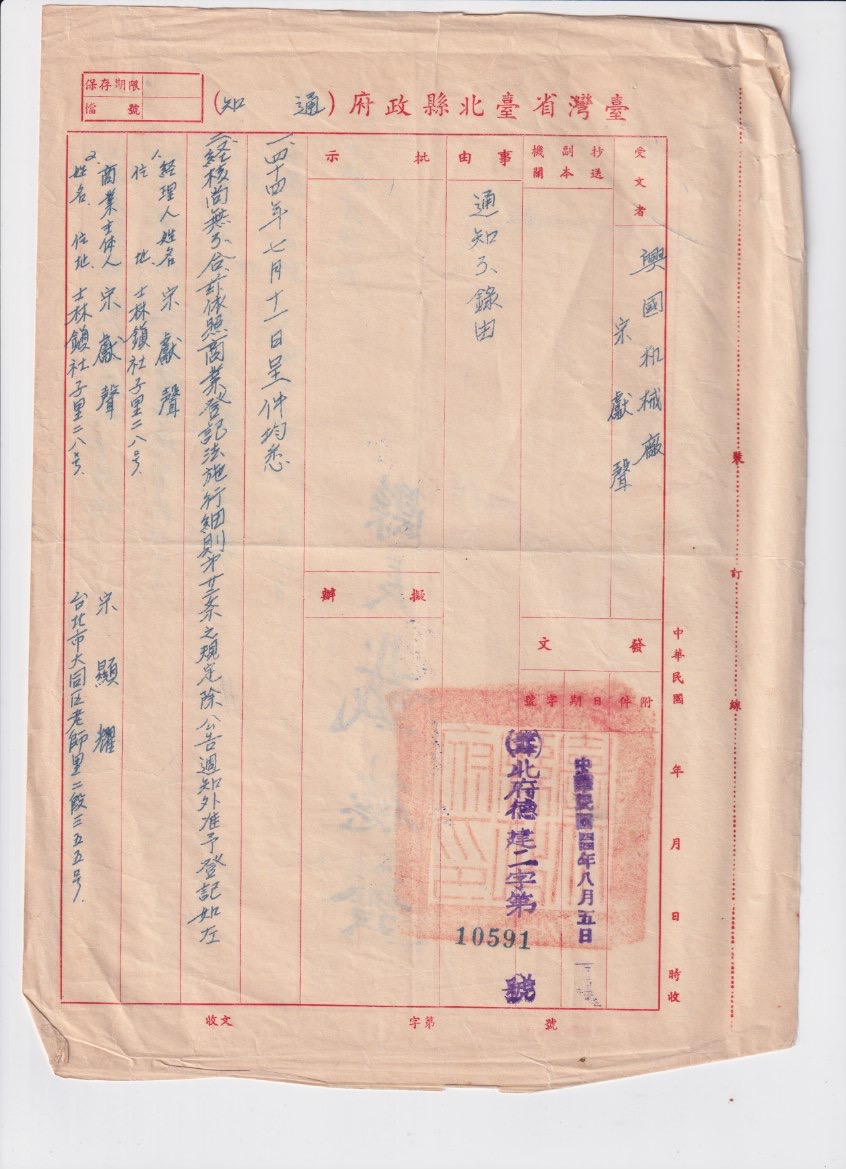 臺灣省臺北縣政府（通知）
保存期限
檔號
受文者
興國机械廠
宗獻聲
抄送副本機關
事由
通知不錄由
批示
擬辦
發文
附件
日期
字號
中華民國四四年八月五日
北府德建二字第
10591
號
一、四十四年七月十一日呈件均悉
二、經核尚無不合茲依照商業登記法施行細則第廿三条之規定除公告週知外准予登記如左
1.經理人姓名 宗獻聲
住地 士林鎮社子里二八号.
2.商業主体人 宗獻聲 宗顯耀
姓名.住地. 士林鎮社子里二八号. 台北市大同区老師里二段三五五号.
裝訂線
中華民國 年 月 日 時收
收文 字第 號